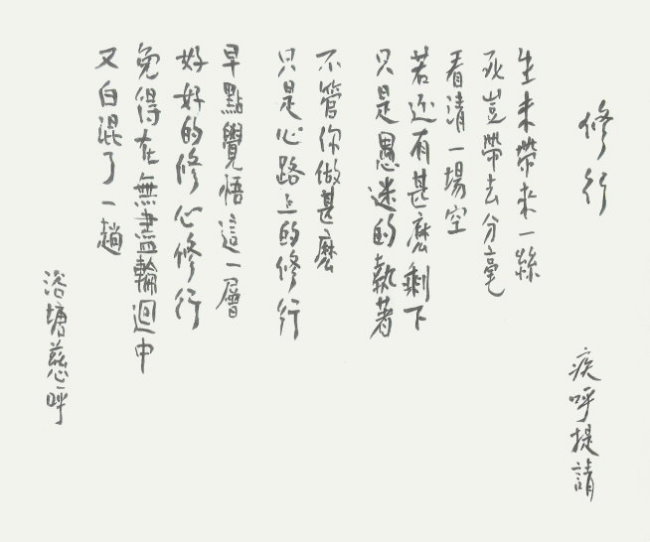 修行
疾呼提請
生未帶來一絲
死豈帶去分毫
看清一場空
若还有甚麼剩下
只是愚迷的執著
不管你做甚麼
只是心路上的修行
早點覺悟這一層
好好的修心修行
免得在無盡輪迴中
又白混了一趟
浴塘慈呼